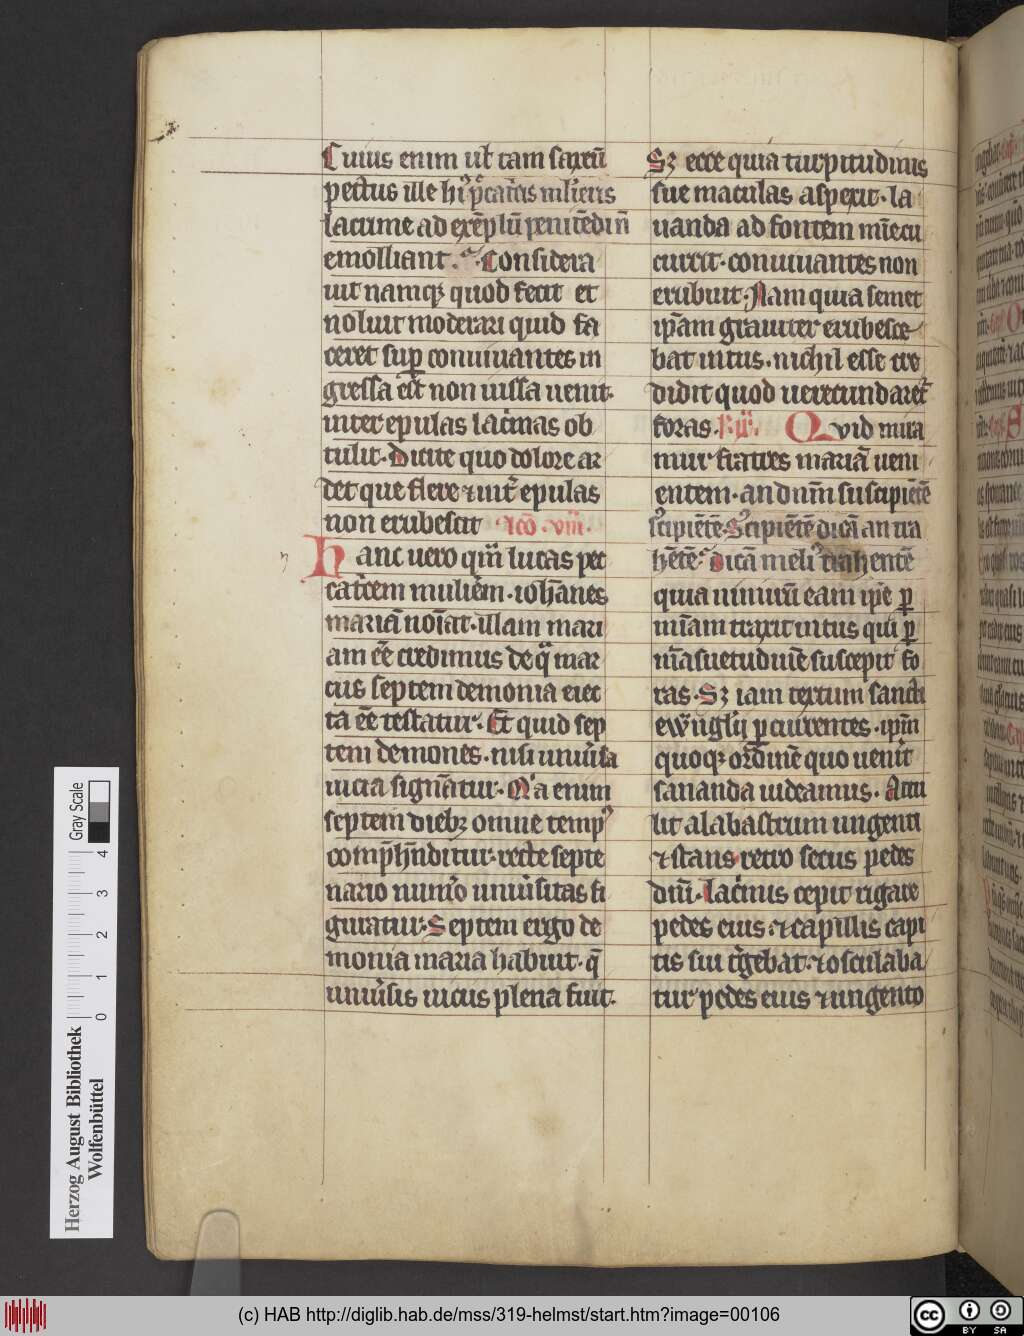 Cuius enim ul̃ tam saxeũ
pectus ille hiꝰ pͨcat̾cis mliẽris
lacrime ad exẽplũ penitẽdi nͫ
emolliant. Considera
uit namqꝫ quod fecit et
noluit moderari quid fa
ceret suꝑ conuiuantes in
gressa est non iussa uenit.
inter epulas lac̾mas ob
tulit. Dicite quo dolore ar
det que flere ⁊ int̾ epulas
non erubescit Lcō. viii.
Hanc uero qͫ lucas pec
cat̾cem mulierem. ioh̃anes
mariã noĩat. illam mari
am eẽ credimus de qͣ mar
cus septem demonia eiec
ta eẽ testatur. Et quid sep
tem demones. nisi uniũsa
uicia signãtur. Nͣ a enim
septem diebꝫ omne tempꝰ
comp̃h̃nditur. recte septe
nario num̾o uniũsitas fi
guratur. Septem ergo de
monia maria habuit. q̃
uniũsis uiciis plena fuit.
Sꝫ ecce quia turpitudinis
sue maculas aspexit. la
uanda ad fontem mĩe cu
currit. conuiuantes non
erubuit. Nam quia semet
ip̃am grauiter erubesce
bat intus. nichil esse cre
didit quod uerecundaret̾
foras. Quid mira
mur fratres mariã ueni
entem. an dnm̃ suscipiẽtẽ
scipiẽtẽ. Scipiẽtẽ dicã an tra
hẽtẽ. Dicã meliꝰ trahentẽ
quia nimirũ eam ip̃e ꝑ
mĩam traxit intus qui ꝑ
m̃asuetudinẽ suscepit fo
ras. Sꝫ iam textum sancti
ewãglij ꝑcurrentes. ip̃m
quoqꝫ ordinẽ quo uenit
sananda uideamus. Attu
lit alabastrum ungenti
⁊ stans retro secus pedes
dnĩ. lac̾mis cepit rigare
pedes eius. ⁊ capillis capi
tis sui t̾gebat. ⁊ osculaba
tur pedes eius ⁊ ungento
Herzog August Bibliothek
Wolfenbüttel
0 1 2 3 4
Gray Scale
(c) HAB http://diglib.hab.de/mss/319-helmst/start.htm?image=00106
cc BY SA